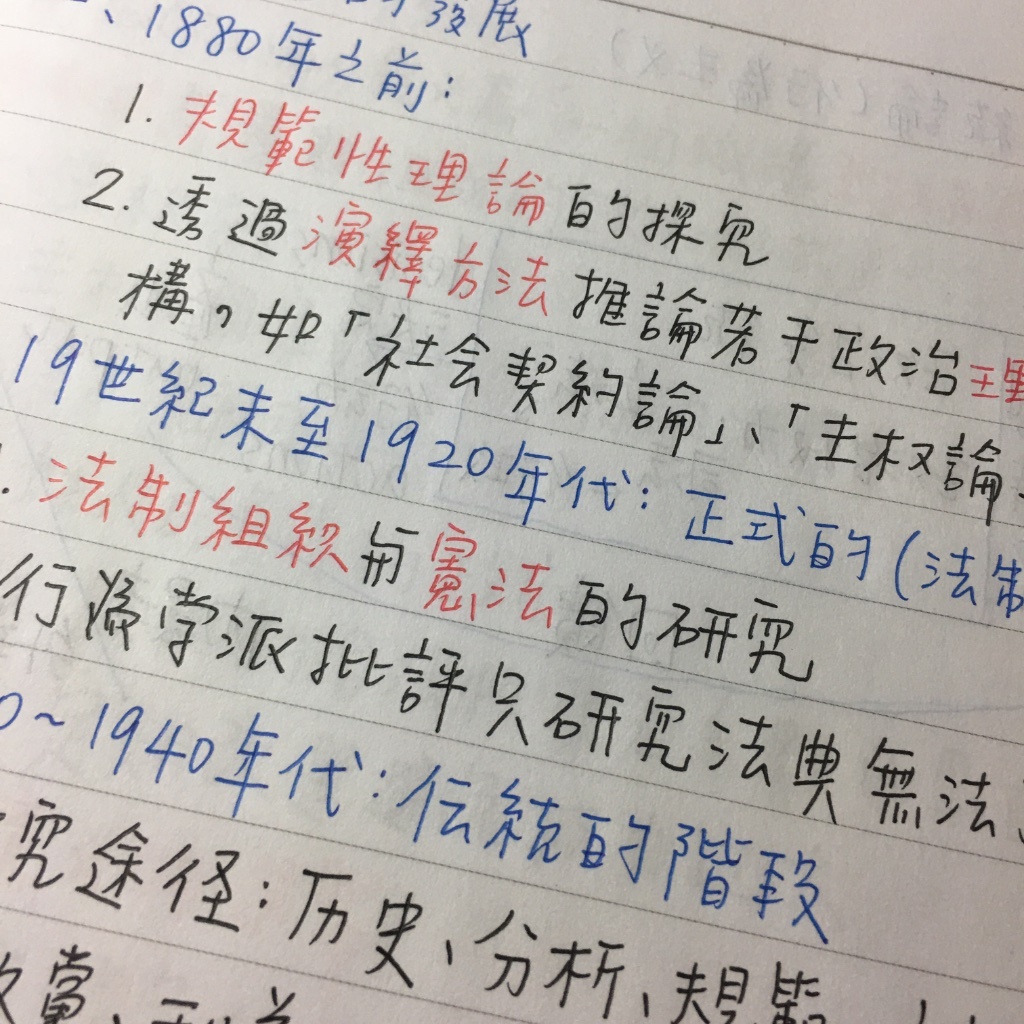 發展
、1880年之前:
1. 規範性理論的探究
2. 透過演繹方法推論若干政治理
構,如「社会契約論」、「主权論
19世紀末至1920年代: 正式的(法制
. 法制組織与憲法的研究
行為学派批評只研究法典無法
0~1940年代: 伝統的階段
究途径: 历史、分析、規範
政黨、